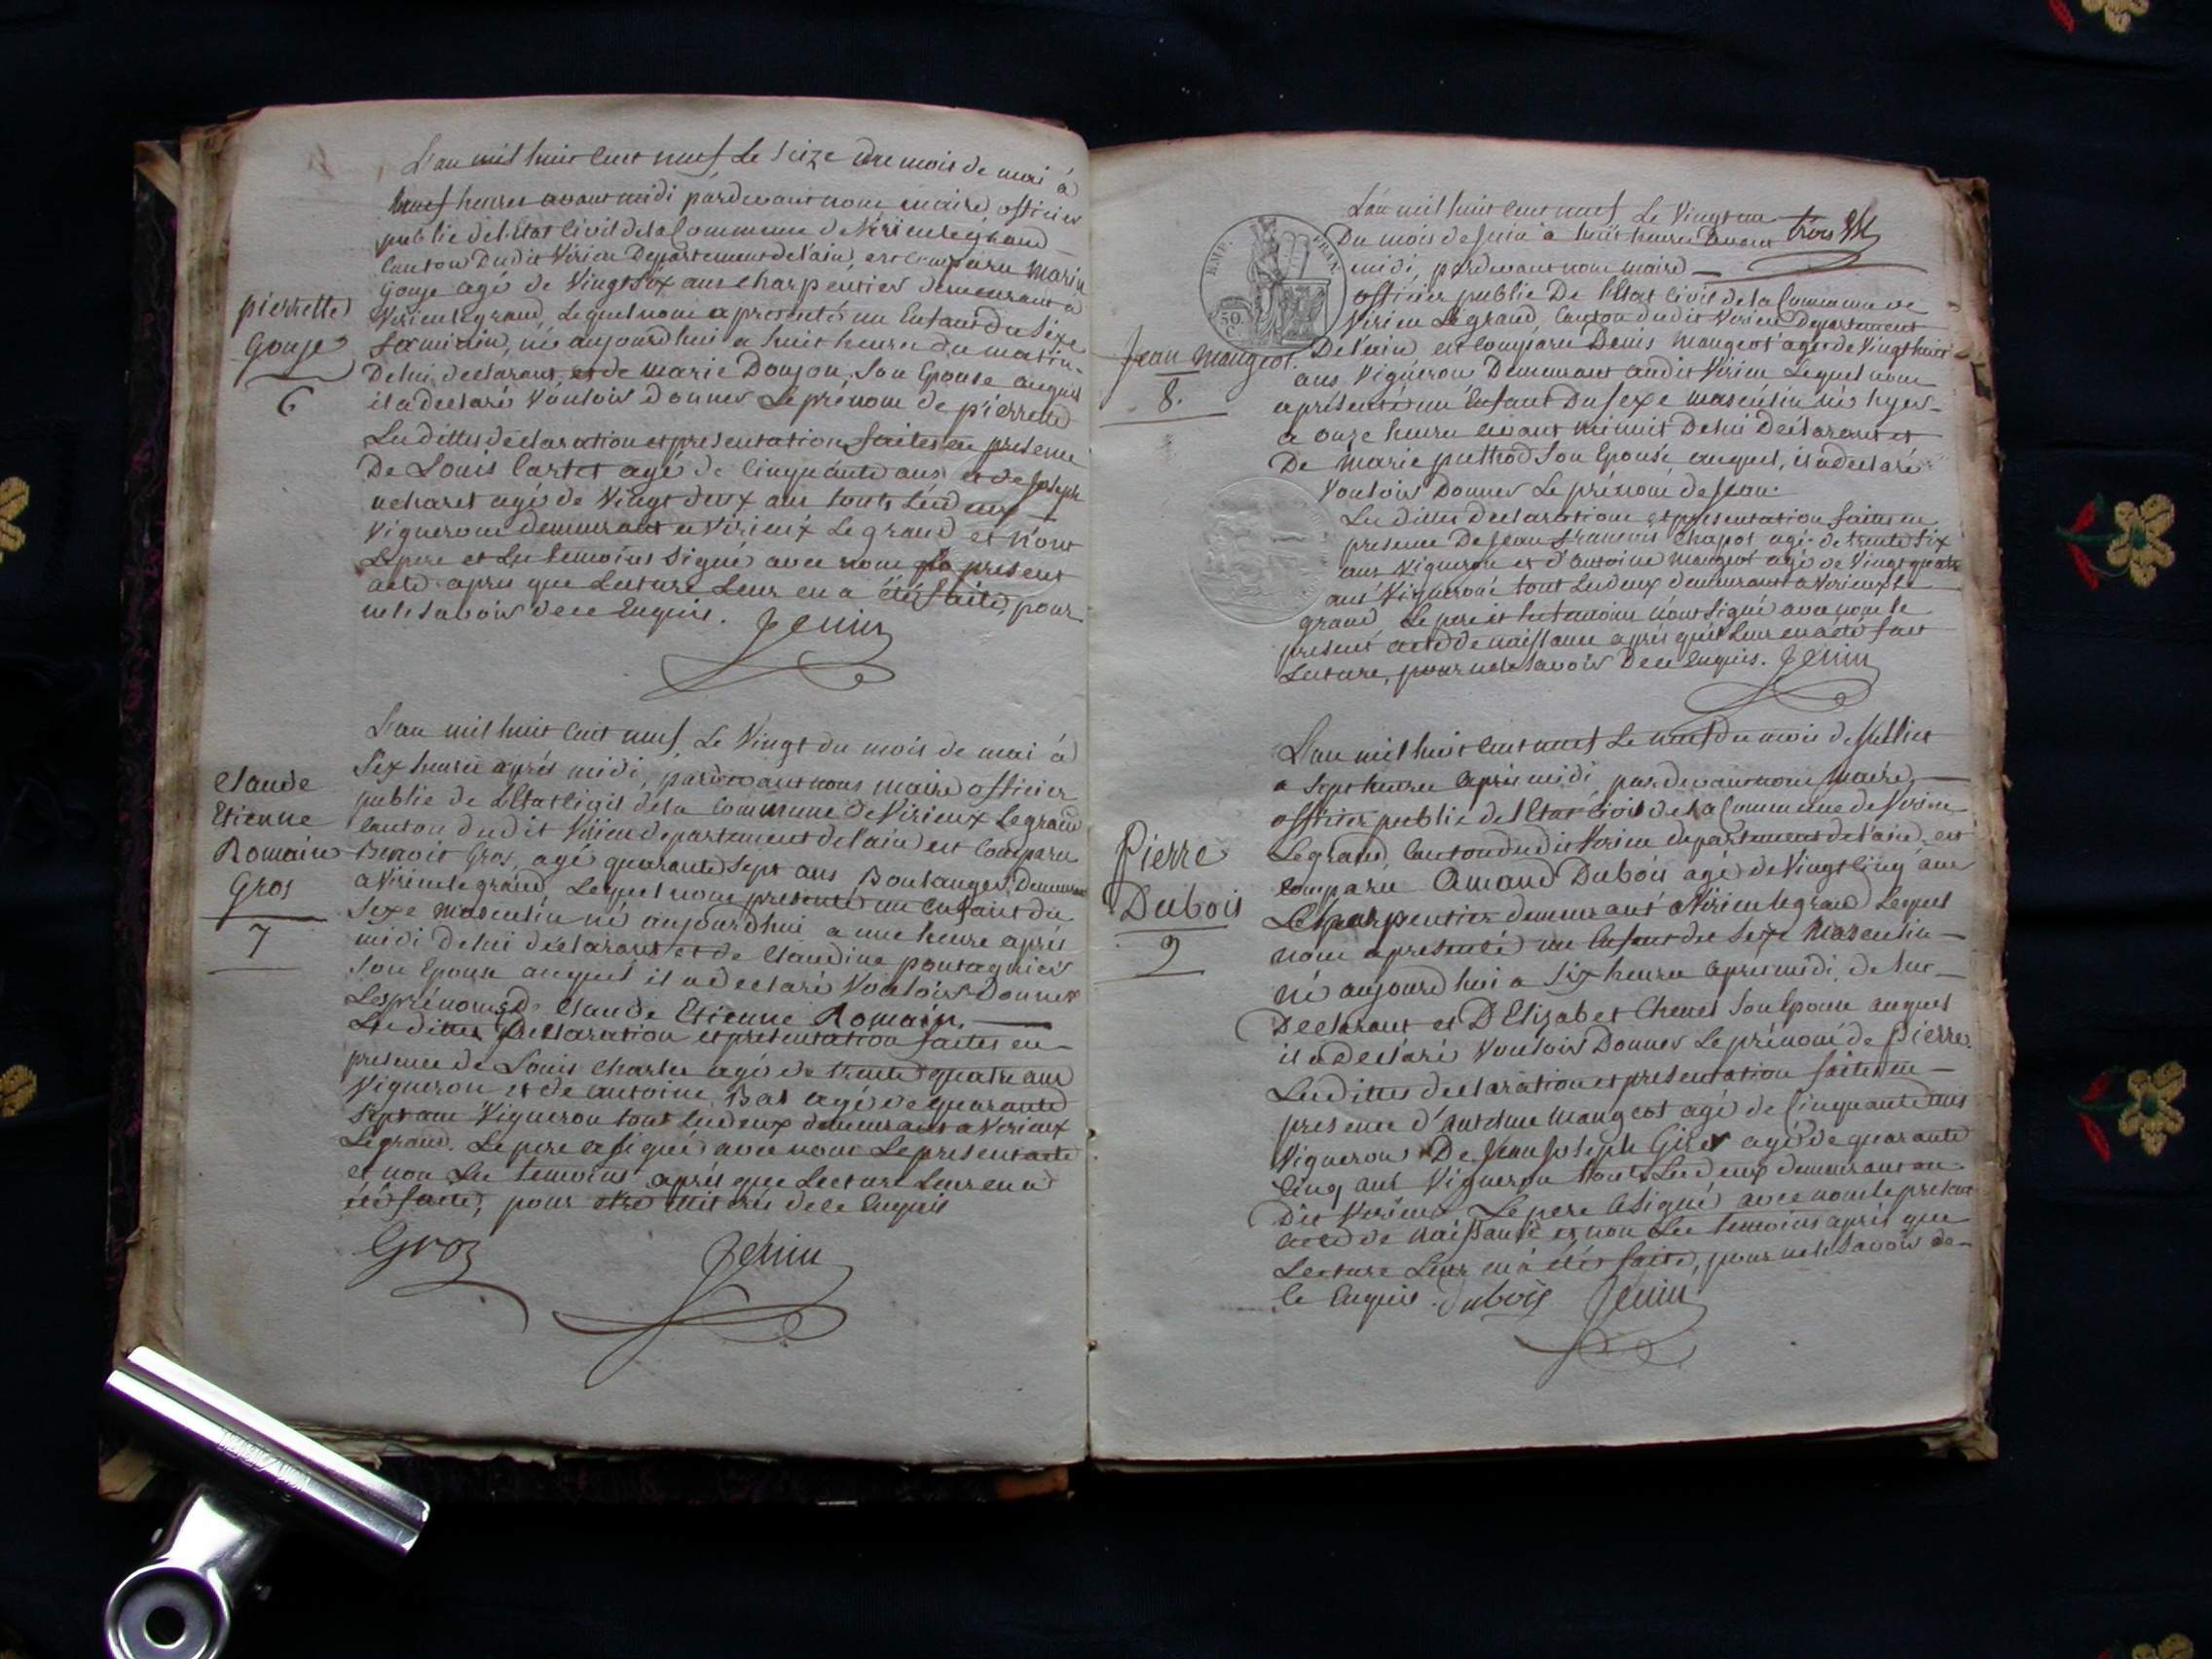 L'an mil huit cent neuf Le seize du mois de mai à
neuf heures avant midi pardevant nous maire officier
public de l'Etat Civil de la Commune de Virieulegrand
Canton Dudit Virieu Departement de l'ain, est comparu Marin
Gouje agé de Vingt Six ans charpentier demeurant a
Virieulegrand, Lequel nous a presenté un Enfant du Sexe
feminin, née aujourdhui a huit heures du matin
De lui declarant, et de marie Donjon, Son Epouse auquel
il a declaré Vouloir donner Le prénom de pierrette
Lesdittes declaration et presentation faites en presence
De Louis Cartet agé de Cinquante ans et de Joseph
agé de Vingt deux ans touts Les deux
Vignerons demeurant a Virieux Le grand et n'ont
Le pere et Les temoins Signé avec nous Le present
acte apres que Lecture Leur en a été faite, pour
ne le Savoir de ce Enquis. Jenin
pierrette
Gouje
6
L'an mil huit cent neuf Le Vingt du mois de mai à
Six heures après midi, pardevant nous maire officier
public de L'Etat Civil de la Commune de Virieux Le grand
Canton dudit Virieu departement de l'ain est Comparu
Benoit Gros, agé quarante Sept ans Boulanger, Demeurant
a Virieulegrand, Lequel nous presenté un enfant du
Sexe masculin né aujourdhui a une heure après
midi De lui déclarant et de Claudine pontagnier
Son Epouse auquel il a declaré Vouloir Donner
Les prénoms De Claude Etienne Romain.
Lesdittes Declaration et presentation faites en
presence de Louis Charles agé de trente quatre ans
Vigneron et de antoine Bal agé de quarante
Sept ans Vigneron tout Les deux demeurant a Virieux
Legrand. Le pere a signé avec nous Le present acte
et non Les temoins après que Lecture Leur en a
été faite, pour etre illitrés de ce Enquis
Claude
Etienne
Romain
Gros
7
Groz Jenin
L'an mil huit cent neuf Le Vingt un trois
Du mois de Juin à huit heures Avant
midi, pardevant nous maire
officier public De l'Etat Civil de la Commune de
Virieu Legrand, Canton dudit Virieu Departement
De l'ain est comparu Denis Mangeot agé de Vingt huit
ans Vigneron Demeurant audit Virieu Lequel nous
a présenté un Enfant Du Sexe masculin né hyer
a onze heures avant minuit De lui Declarant et
De Marie puthod Son Epouse auquel, il a declaré
Vouloir Donner Le prénom de Jean.
Lesdittes declarations et presentation faites en
presence De Jean francois Chapot agé de trente Six
ans Vigneron et d'antoine Mangeot agé de Vingt quatre
ans Vigneron tout Les deux demeurant a Virieux Le
grand Le pere et Les temoins n'ont Signé avec nous le
present acte de naissance après quil Leur en a été fait
Lecture, pour ne le Savoir De ce Enquis. Jenin
EMP. FRAN.
50 C
Jean Mangeot.
8.
L'an mil huit cent neuf Le neuf du mois de Juillet
a Sept heures après midi pardevant nous Maire,
officier public de l'Etat Civil de la Commune de Virieu
Legrand, Canton dudit Virieu departement de l'ain, est
comparu Amand Dubois agé de Vingt Cinq ans
Charpentier demeurant a Virieulegrand Lequel
nous a presenté un Enfant du Sexe Masculin
né aujourdhui a Six heures après midi, de lui
Declarant et D'Elizabet Chenet Son Epouse auquel
il a declaré Vouloir Donner Le prénom de Pierre.
Lesdittes declaration et presentation faites en
presence d'antelme Mangeot agé de Cinquante ans
Vigneron De Jean Joseph Giret agé de quarante
Cinq ans Vigneron touts Les deux demeurant au
Dit Virieux Le pere a Signé avec nous le present
acte de naissance et non Les temoins après que
Lecture Leur en à été faite, pour ne le Savoir de
Ce Enquis. Dubois Jenin
Pierre
Dubois
9